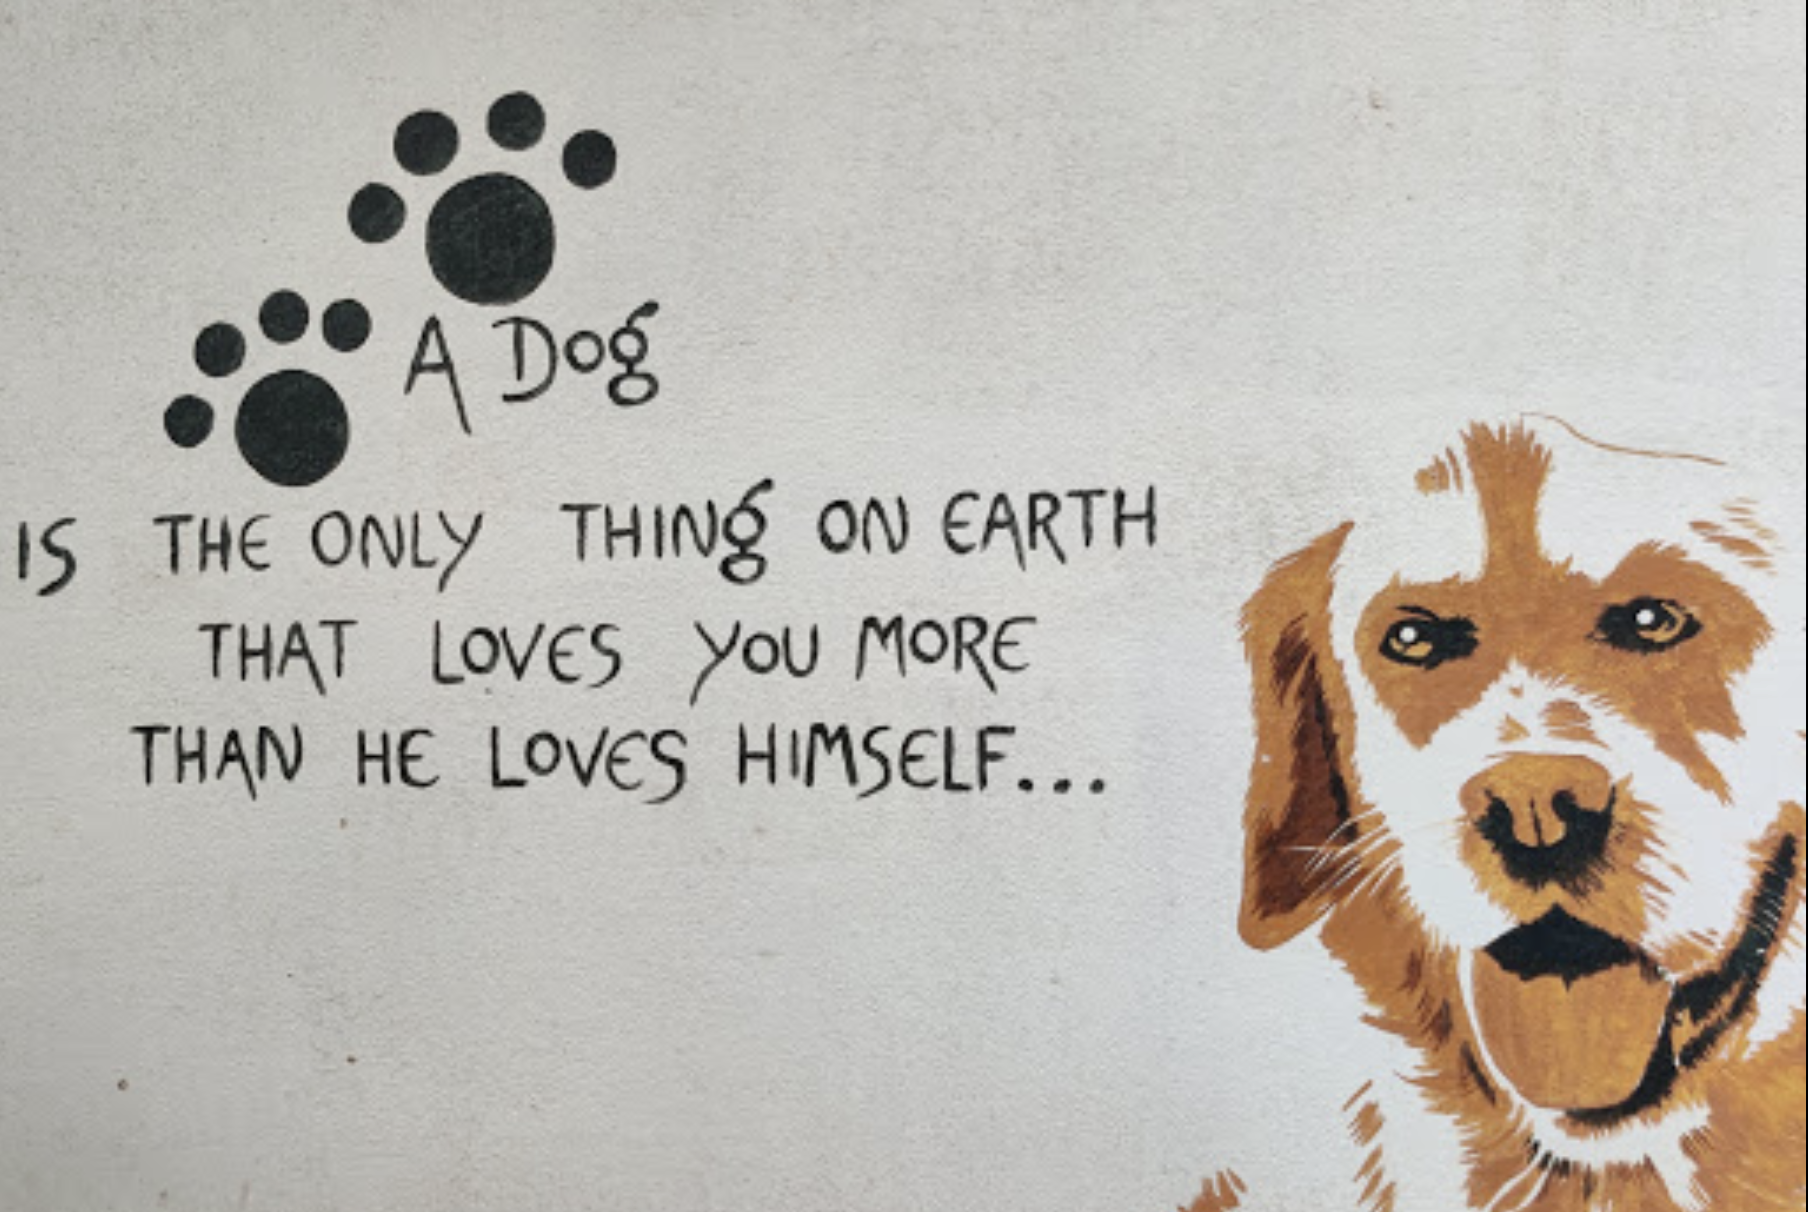 A Dog
IS THE ONLY THING ON EARTH
THAT LOVES YOU MORE
THAN HE LOVES HIMSELF...